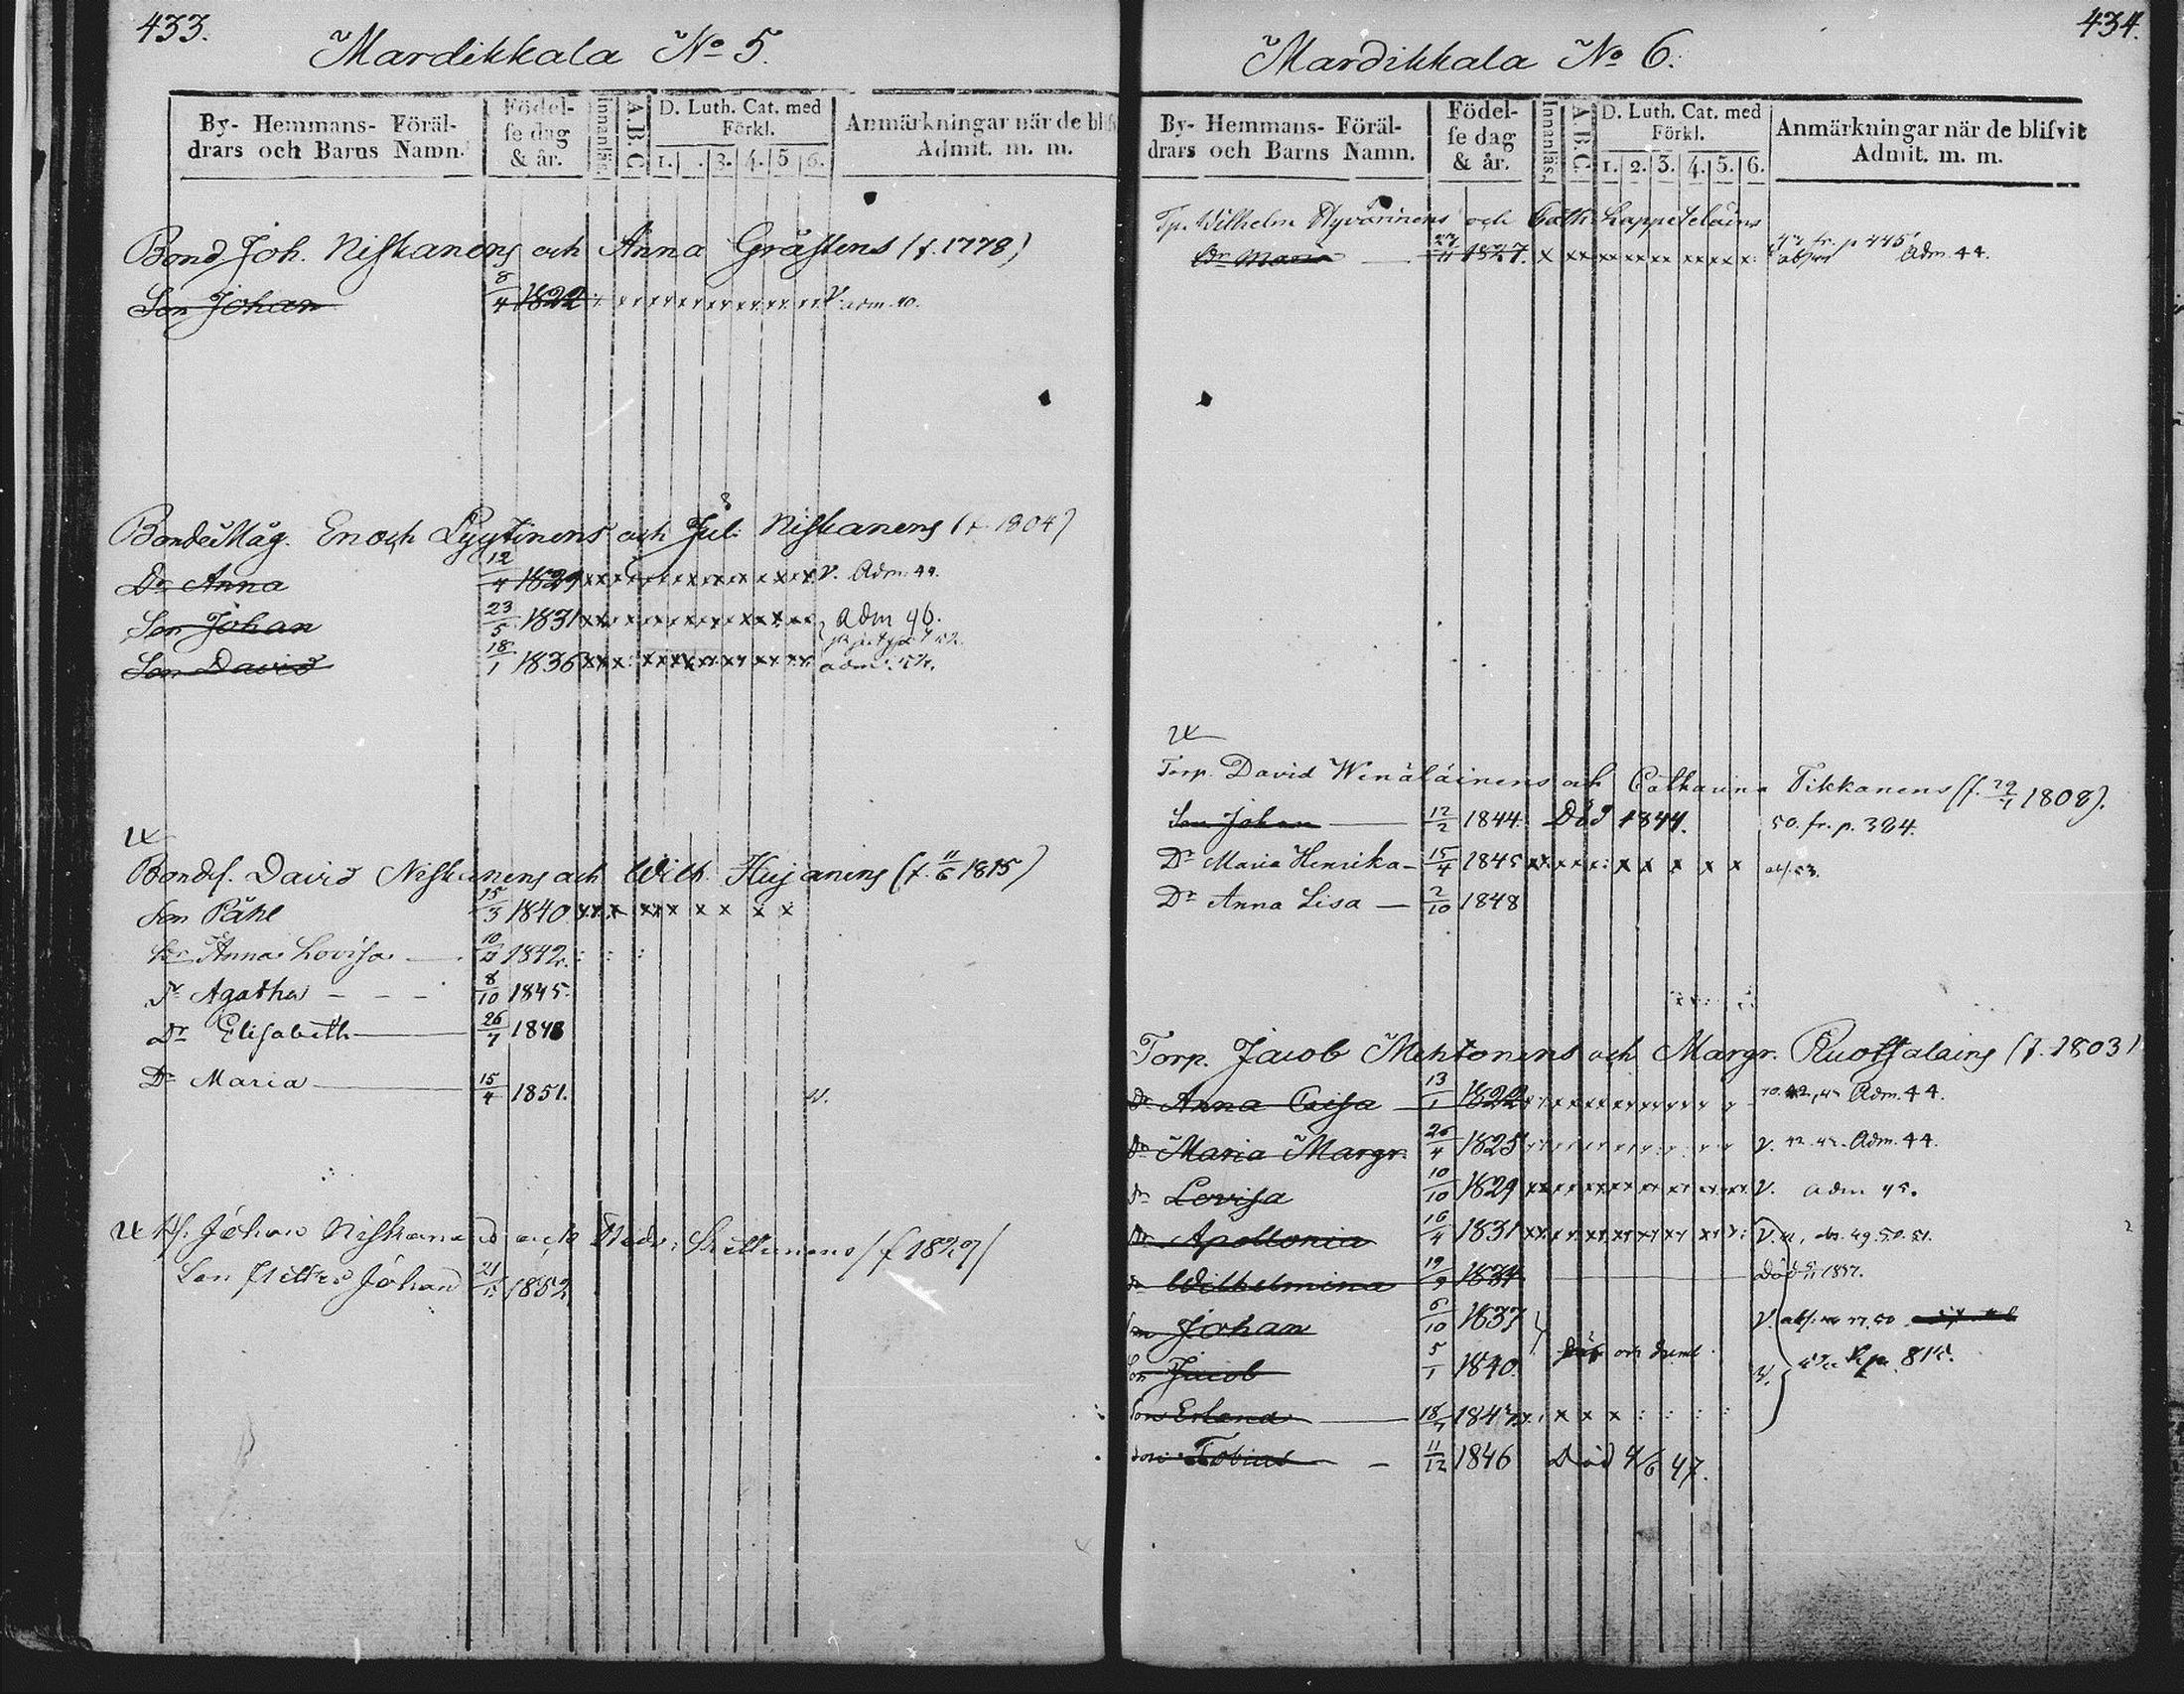 433.
Mardikkala No 5.
By- Hemmans- Föräl-
drars och Barns Namn.
Födel-
se dag
& år.
Innanläs.
A.B.C
D. Luth. Cat. med
Förkl.
1. . 3. 4. 5 6.
Anmärkningar när de blif
Admit. m. m.
Bond Joh. Niskanens och Anna Gråstens (f. 1778)
Son Johan 8/4 1822 adm. 40.
Bonde Måg. Enoch Lyytinens och Jul. Niskanens (f. 1804)
Dr Anna 12/4 1829 xx V. Adm. 44.
Son Johan 23/5 1831 xx Adm 46.
Son David 18/1 1836 xx adm.
Bonds. David Niskanens och Wilh. Hujanens (f. 11/6 1815)
Son Påhl 15/3 1840 xx x xx x x x x x
Dr Anna Lovisa 1842
Dr Agatha 8/10 1845.
Dr Elisabeth 26/7 1848
Dr Maria 15/4 1851.
Johan Niskanens och Hedv. /f 1829/
Son Petter Johan 1852
434.
Mardikkala No 6.
By- Hemmans- Föräl-
drars och Barns Namn.
Födel-
se dag
& år.
Innanläs.
A.B.C.
D. Luth. Cat. med
Förkl.
1. 2. 3. 4. 5. 6.
Anmärkningar när de blifvit
Admit. m. m.
Tp. Wilhelm Hyvärinens och Cath. Lappeteläins
Dr Maria 27/11 1827. x xx xx xx xx xx xx x: fr. p 445 Adm. 44.
Torp. David Wenäläinens och Catharina Tikkanens (f. 29/1 1808).
Son Johan 12/2 1844. Död 1844. 50. fr. p. 384.
Dr Maria Henrika 15/4 1845 xx x x x: x x x x x abs. 53.
Dr Anna Lisa 2/10 1848
Torp. Jacob Mehtonens och Margr. Ruotsalains (f. 1803)
Dr Anna Caisa 13/1 1822 Adm. 44.
Dr Maria Margr. 26/4 1825 V. Adm. 44.
Dr Lovisa 10/10 1829 V. adm 45.
Dr Apollonia 16/4 1831 49. 50. 51.
Dr Wilhelmina 19/9 1834 Död 1837.
Son Johan 6/10 1837 V.
Son Jacob 5/1 1840. döf och dumb V. 815.
Son Erland 1843 x x x : : : :
Son Tobias 11/12 1846 Död 4/6 47.